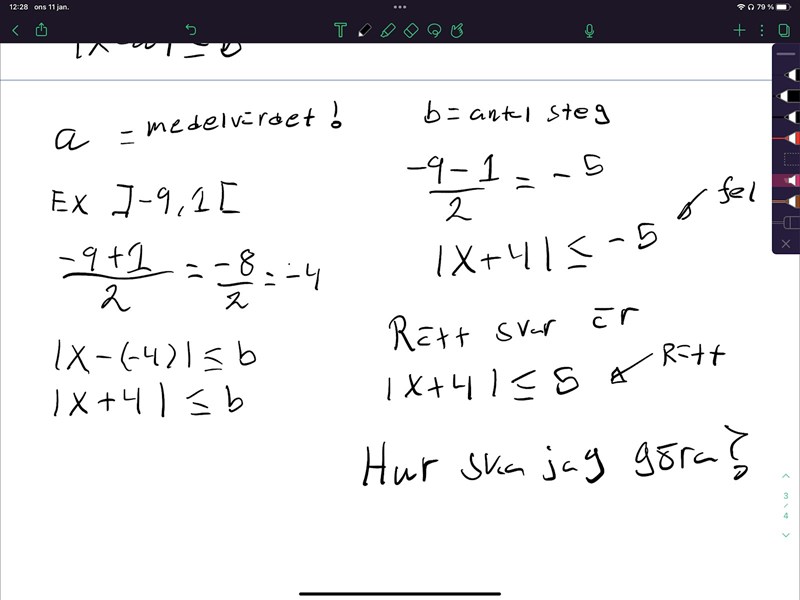 12:28 ons 11 jan.
79 %
|x-a| ≤ b
a = medelvärdet!
Ex ]-9,1[
(-9+1)/2 = -8/2 = -4
|x-(-4)| ≤ b
|x+4| ≤ b
b = antal steg
(-9-1)/2 = -5
|x+4| ≤ -5 fel
Rätt svar är
|x+4| ≤ 5 Rätt
Hur ska jag göra?
3
/
4